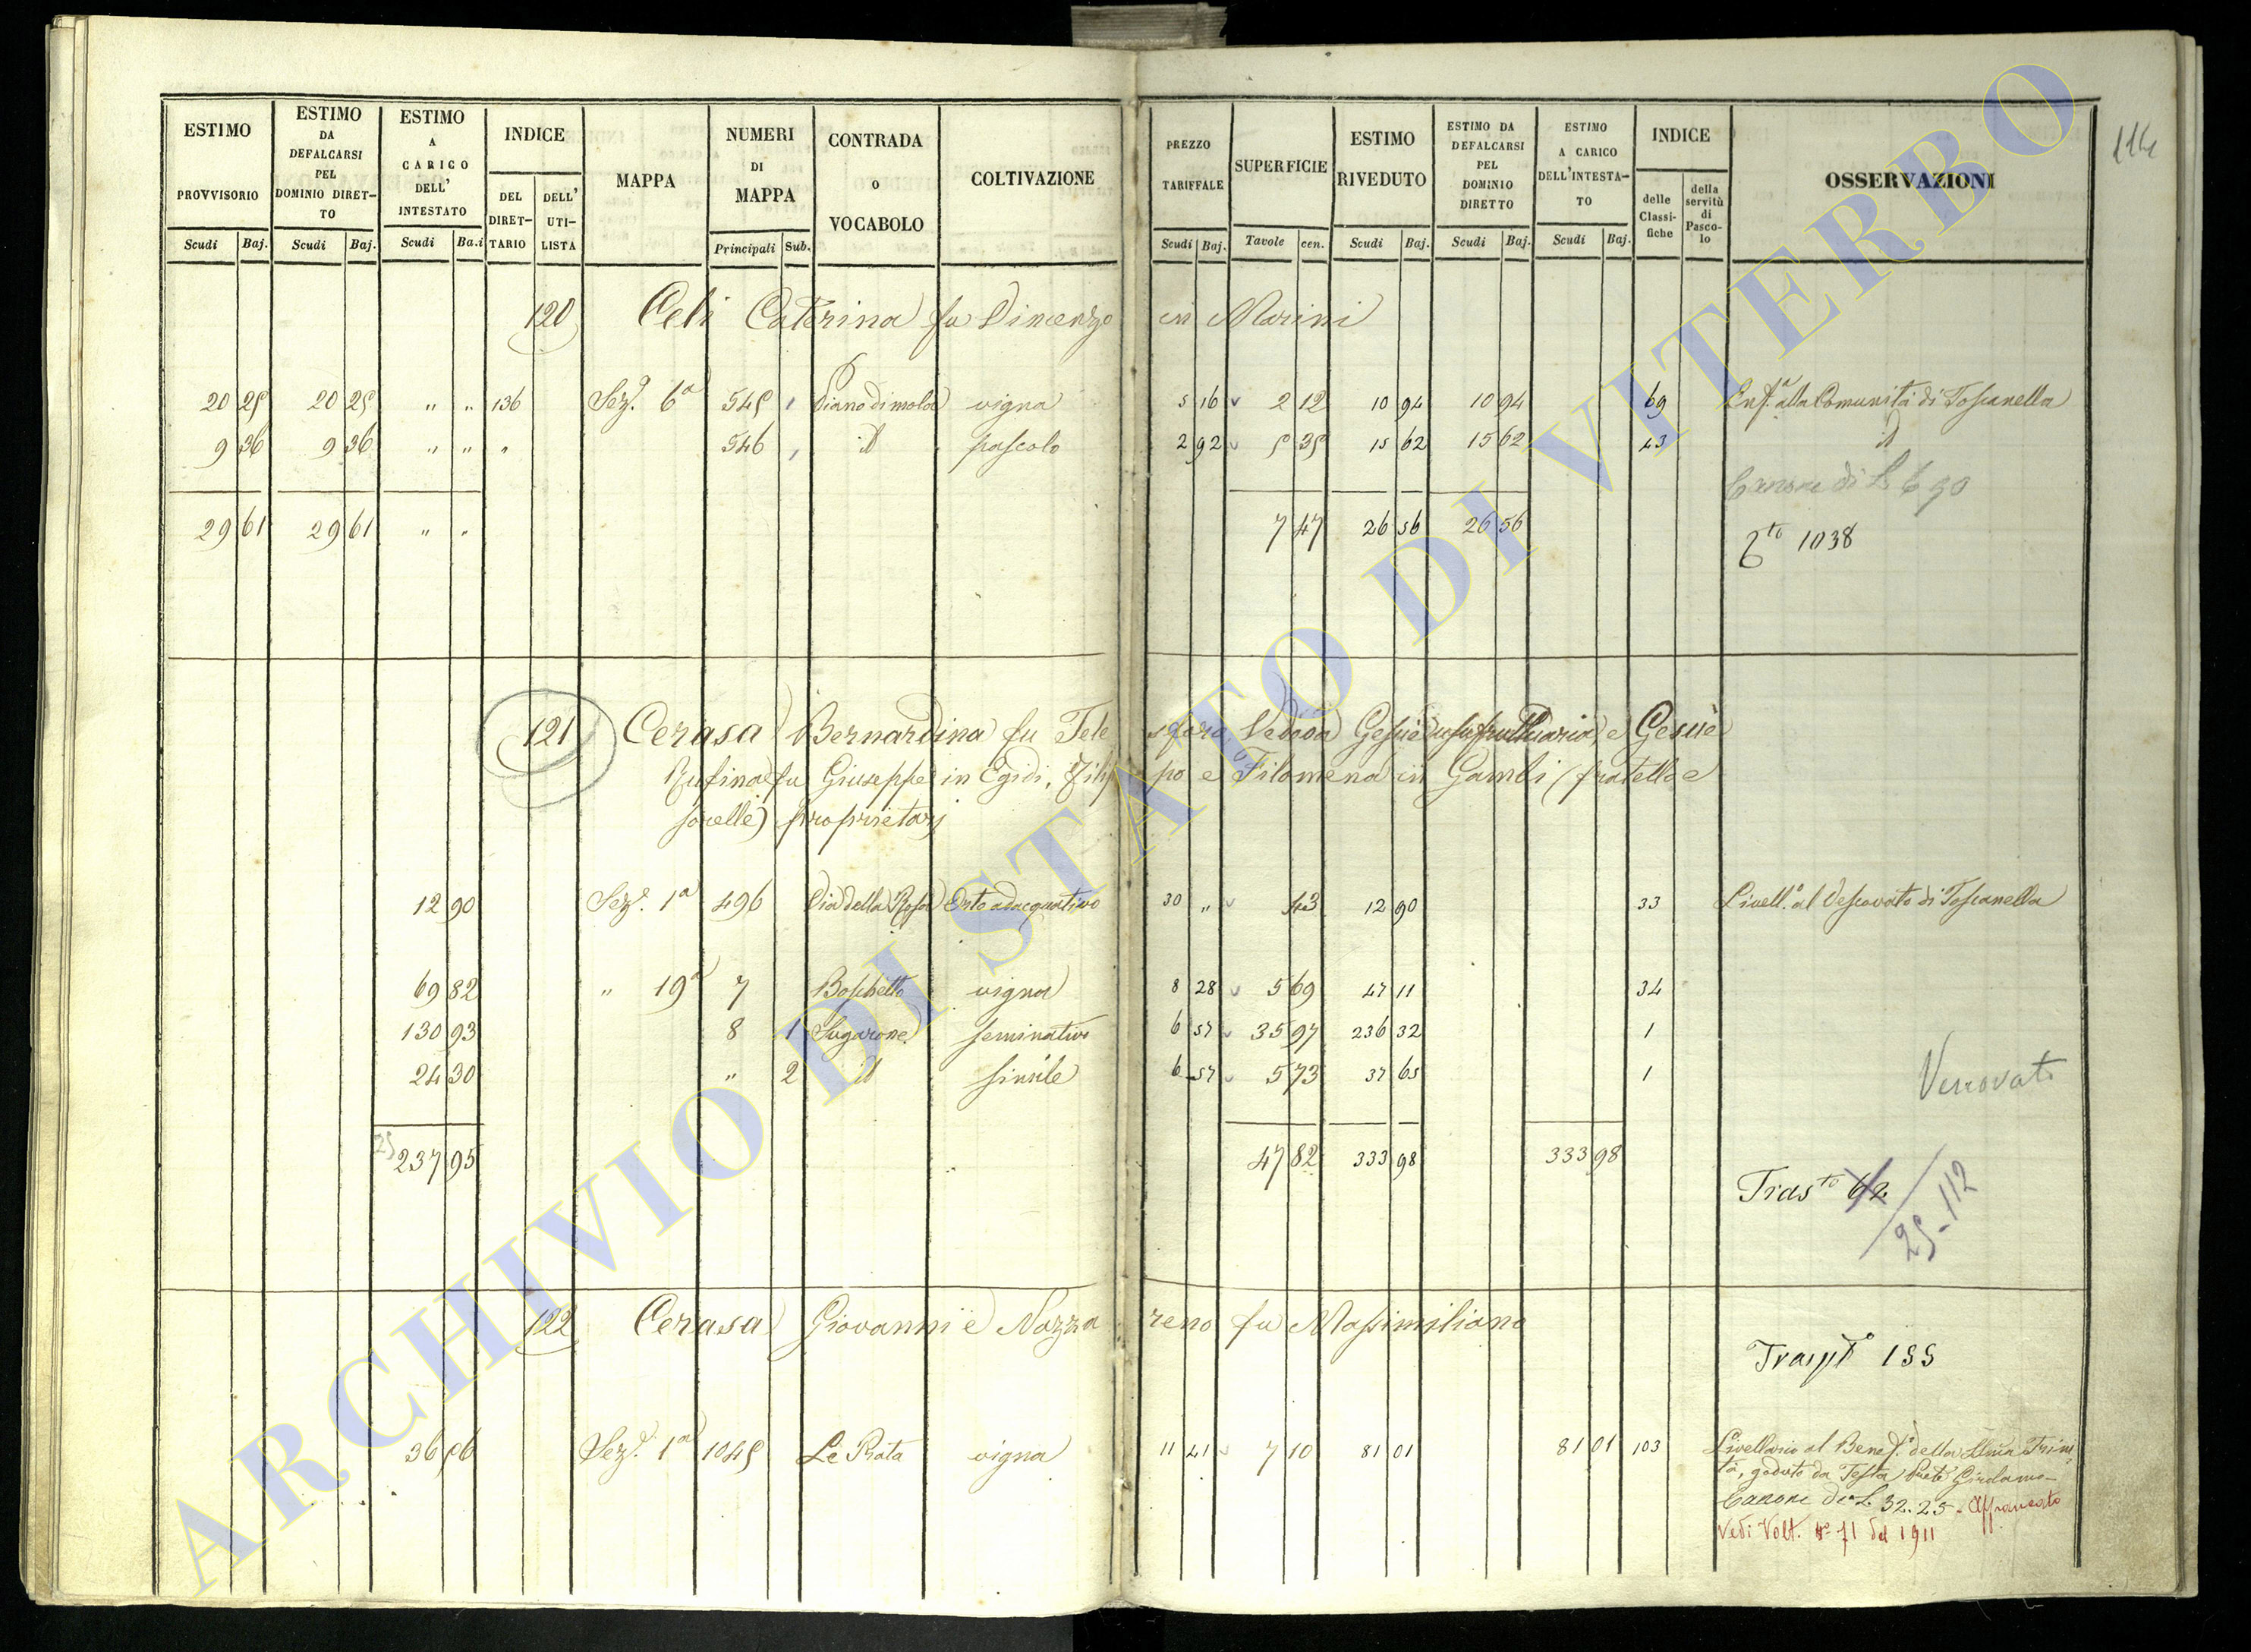 114
ESTIMO PROVVISORIO Scudi Baj. | ESTIMO DA DEFALCARSI PEL DOMINIO DIRETTO Scudi Baj. | ESTIMO A CARICO DELL' INTESTATO Scudi Ba.i | INDICE DEL DIRETTARIO DELL' UTILISTA | MAPPA | NUMERI DI MAPPA Principali Sub. | CONTRADA O VOCABOLO | COLTIVAZIONE | PREZZO TARIFFALE Scudi Baj. | SUPERFICIE Tavole cen. | ESTIMO RIVEDUTO Scudi Baj. | ESTIMO DA DEFALCARSI PEL DOMINIO DIRETTO Scudi Baj. | ESTIMO A CARICO DELL'INTESTATO Scudi Baj. | INDICE delle Classifiche della servitù di Pascolo | OSSERVAZIONI
120 Celi Caterina fu Vincenzo in Marini
20 25 20 25 " " 136 Sez.e 6a 545 Piano di mola vigna 5 16 2 12 10 94 10 94 69 Enf.a alla Comunità di Toscanella
9 36 9 36 " " " 546 id pascolo 2 92 5 35 15 62 15 62 43 id
Canone di L 6 90
29 61 29 61 " " 7 47 26 56 26 56
1038
121 Cerasa Bernardina fu Telesforo Vedova Gesuè usufruttuaria, e Gesuè
Rufina fu Giuseppe in Egidi, Filippo e Filomena in Gambi (fratello e
sorelle) proprietarj
12 90 Sez.e 1a 496 Via della Rosa Orto adacquativo 30 " 43 12 90 33 Livell.o al Vescovato di Toscanella
69 82 " 19a 7 Boschetto vigna 8 28 5 69 47 11 34
130 93 8 1 Sugarone seminativo 6 57 35 97 236 32 1
24 30 " 2 id simile 6 57 5 73 37 65 1
237 95 47 82 333 98 333 98
Trasto 62
25-112
122 Cerasa Giovanni e Nazzareno fu Massimiliano
155
36 56 Sez.e 1a 1045 Le Prata vigna 11 41 7 10 81 01 81 01 103 Livellario al Benef.o della SSma Trini
tà, goduto da Testa Prete Girolamo
Canone di L 32.25 - Affrancato
Vedi Volt. No 71 del 1911
ARCHIVIO DI STATO DI VITERBO